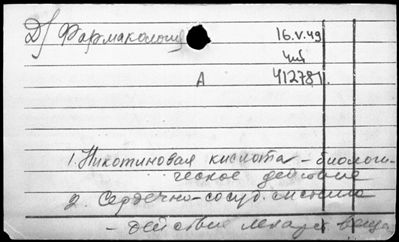 Д/ Фармакология
16.V.49
чит
А
412781.
1. Никотиновая кислота - биологи-
ческое действие
2. Сердечно-сосуд. система
- действие лекарс. веще